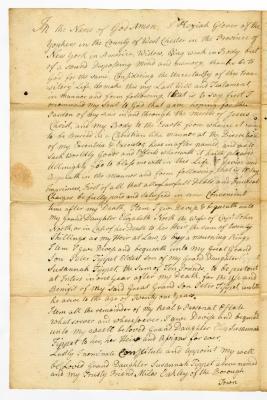 In the Name of God Amen. I Keziah Glover of the
Yonkers in the County of West Chester in the Province of
New York in America, Widow, being weak in Body but
of a sound Disposing Mind and memory, thanks be to
God for the same Considering the uncertainty of this tran
sitory Life do make this my Last Will and Testament
in manner and form following that is to say first I
recommend my Soul to God that gave hoping for the
Pardon of my sins
Christ, and my Body to the Earth from whence it came
to be Buried in a Christian like manner at the Discretion
of my Executrix & Executor herein after named, and as to
Such worldly Goods and Effects wherewith it hath pleased
Almighty God to bless me with in this Life I Devise and
Bequeath in the manner and form following that is to say
Imprimis, first of all that all my Lawful Debts and Funeral
Charges be fully paid and satisfied in some Convenient
time after my Death. Item I give Devise & Bequeath unto
my Grand Daughter Elizabeth North the Wife of Capt. John
North, or in Case of her Death to her Heir the sum of twenty
Shillings
Item I give Devise and Bequeath unto my Great Grand
Son Peter Tippet Eldest Son of my Grand Daughter
Susannah Tippet the Sum of Ten Pounds to be put out
at Interest in one year after my Death for the Use and
Benefit of my Said Great Grand Son Peter Tippet until
he arrive to the age of Twenty one Years,
Item all the remainder of my Real & Personal Estate
whatsoever and wheresoever, I give Devise and Bequeath
unto my well beloved Grand Daughter Susannah
Tippet to her, her Heirs and Assigns for ever.
Lastly I nominate Constitute and appoint my well
beloved Grand Daughter Susannah Tippet above named
and my Trusty Friend Miles Oakley of the Borough
Town